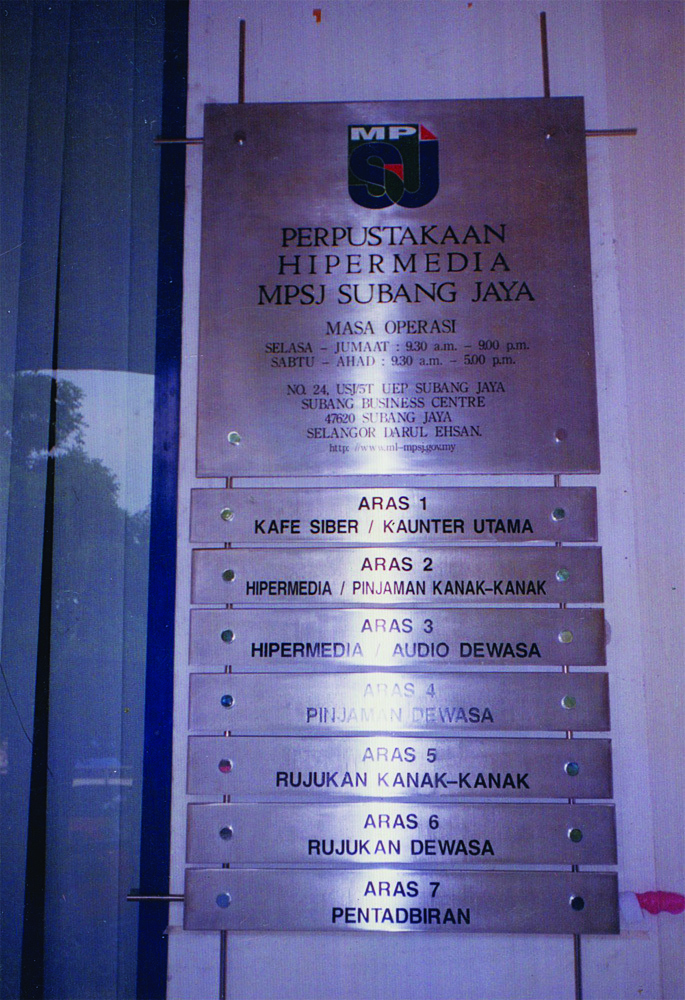 MP
SJ
PERPUSTAKAAN
HIPERMEDIA
MPSJ SUBANG JAYA
MASA OPERASI
SELASA – JUMAAT : 9.30 a.m. – 9.00 p.m.
SABTU – AHAD : 9.30 a.m. – 5.00 p.m.
NO. 24, USJ/5T UEP SUBANG JAYA
SUBANG BUSINESS CENTRE
47620 SUBANG JAYA
SELANGOR DARUL EHSAN.
http: //www.ml-mpsj.gov.my
ARAS 1
KAFE SIBER / KAUNTER UTAMA
ARAS 2
HIPERMEDIA / PINJAMAN KANAK–KANAK
ARAS 3
HIPERMEDIA / AUDIO DEWASA
ARAS 4
PINJAMAN DEWASA
ARAS 5
RUJUKAN KANAK–KANAK
ARAS 6
RUJUKAN DEWASA
ARAS 7
PENTADBIRAN